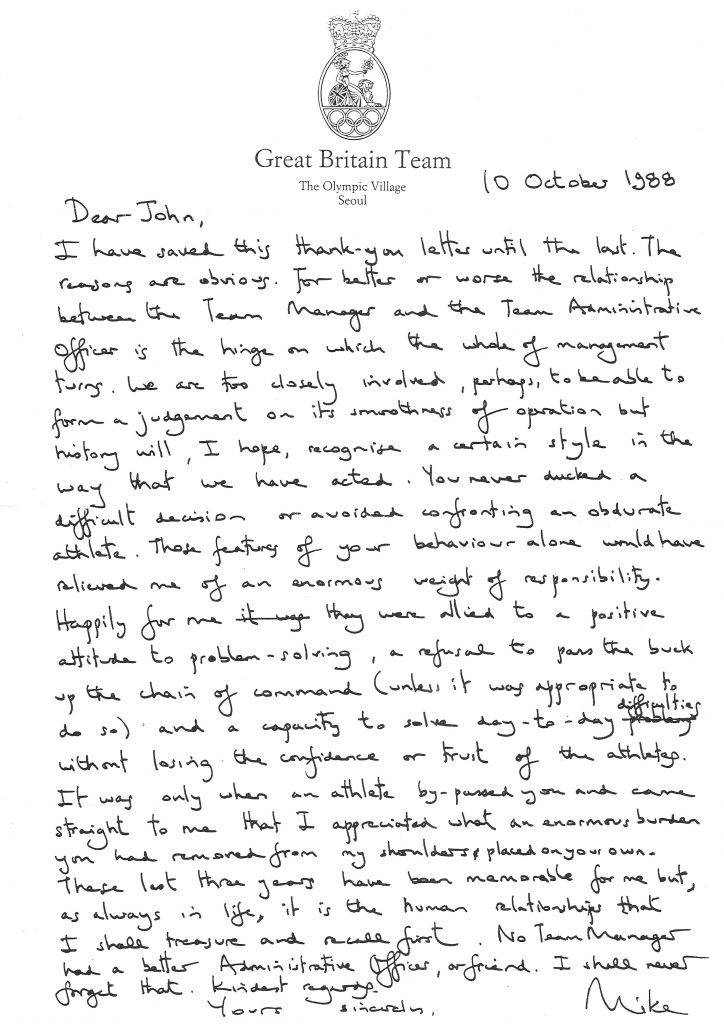 Great Britain Team
The Olympic Village
Seoul
10 October 1988
Dear John,
I have saved this thank-you letter until the last. The
reasons are obvious. For better or worse the relationship
between the Team Manager and the Team Administrative
Officer is the hinge on which the whole of management
turns. We are too closely involved, perhaps, to be able to
form a judgement on its smoothness of operation but
history will, I hope, recognise a certain style in the
way that we have acted. You never ducked a
difficult decision or avoided confronting an obdurate
athlete. Those features of your behaviour alone would have
relieved me of an enormous weight of responsibility.
Happily for me it was they were allied to a positive
attitude to problem-solving, a refusal to pass the buck
up the chain of command (unless it was appropriate to
do so) and a capacity to solve day-to-day problems difficulties
without losing the confidence or trust of the athletes.
It was only when an athlete by-passed you and came
straight to me that I appreciated what an enormous burden
you had removed from my shoulders & placed on your own.
These last three years have been memorable for me but,
as always in life, it is the human relationships that
I shall treasure and recall first. No Team Manager
had a better Administrative Officer, or friend. I shall never
forget that. Kindest regards.
Yours sincerely,
Mike